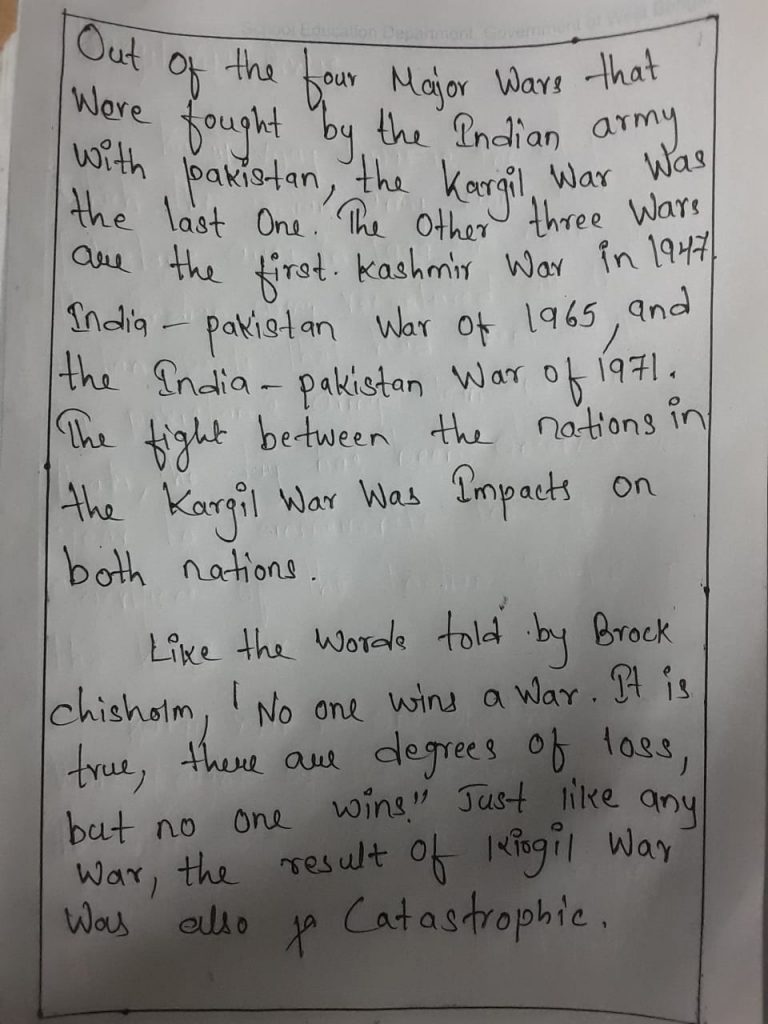 School Education Department, Government of West Bengal
Out of the four Major Wars that
Were fought by the Indian army
With pakistan, the Kargil War Was
the last One. The Other three Wars
are the first. Kashmir War in 1947
India - pakistan War of 1965, and
the India - pakistan War of 1971.
The fight between the nations in
the Kargil War Was Impacts on
both nations.
Like the Words told by Brock
chisholm, 'No one wins a War. It is
true, there are degrees of loss,
but no one wins." Just like any
War, the result of Kirgil War
Was also Catastrophic.